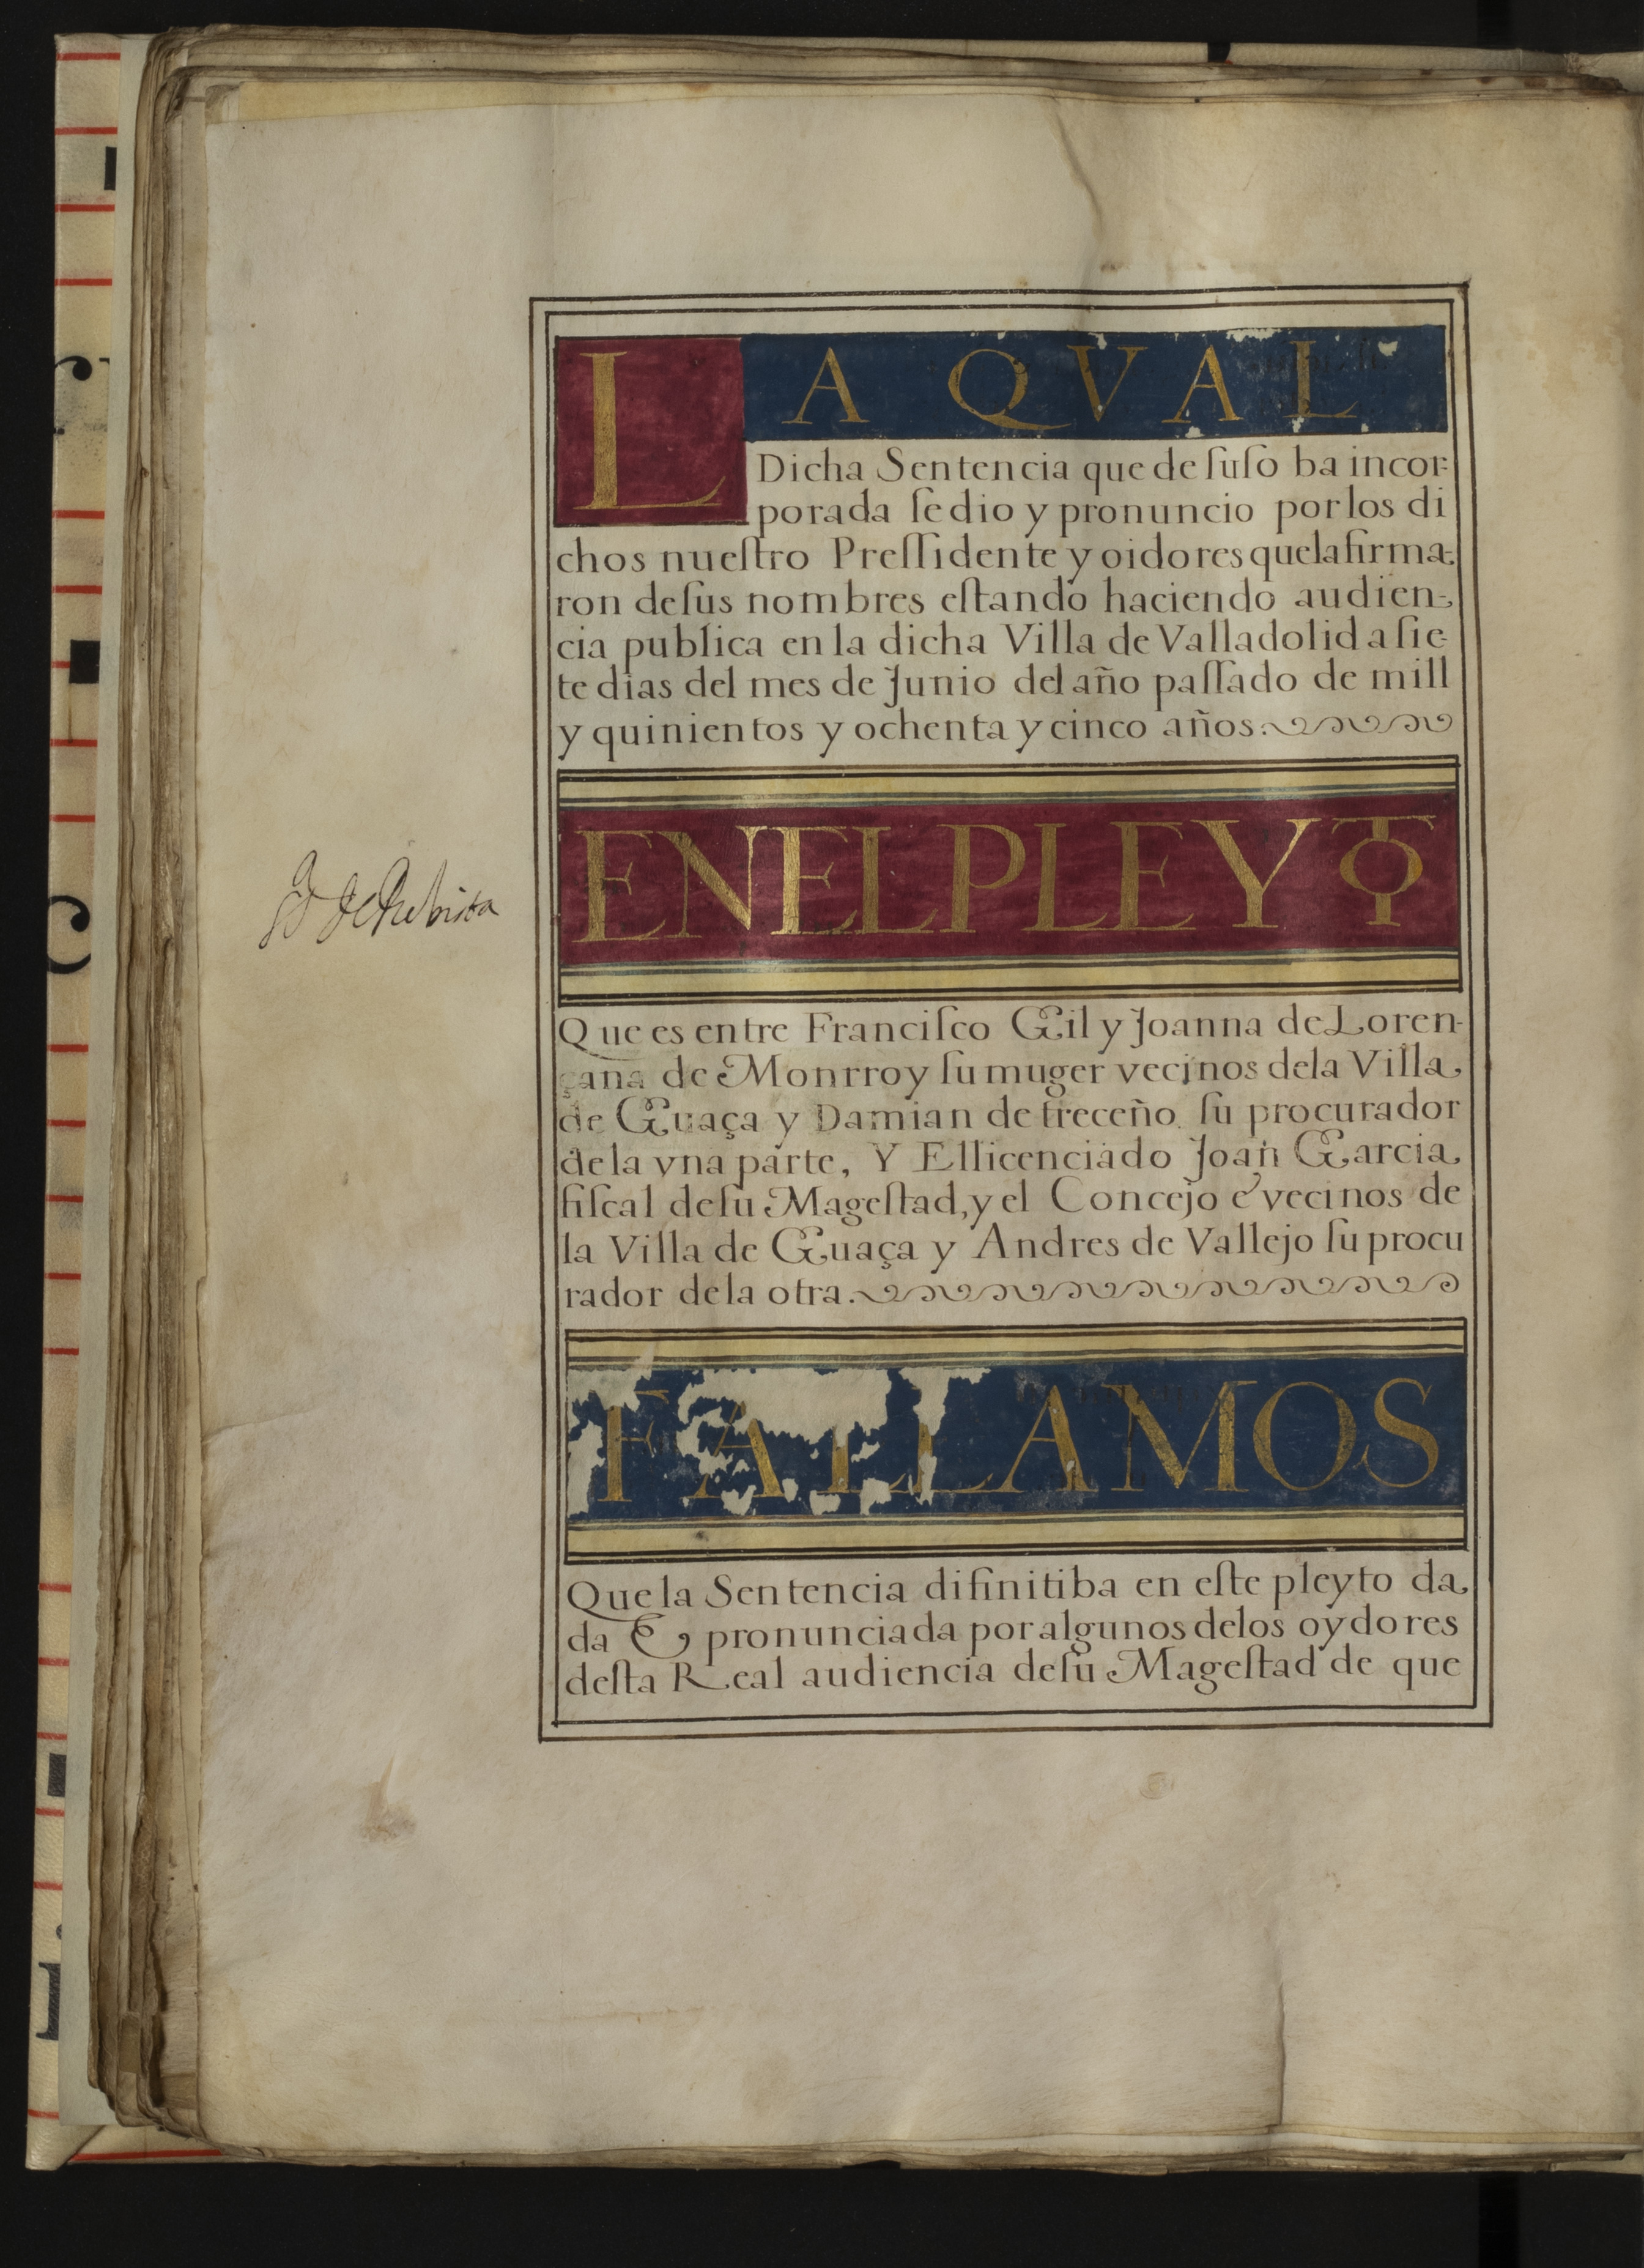 LA QVAL
Dicha Sentencia que de ſuſo ba incor-
porada ſe dio y pronuncio por los di
chos nueſtro Preſſidente y oidores que la firma-
ron de ſus nombres eſtando haciendo audien-
cia publica en la dicha Villa de Valladolid a ſie-
te dias del mes de Junio del año paſſado de mill
y quinientos y ochenta y cinco años.
EN EL PLEYTO
de Rebista
Que es entre Franciſco Gil y Joanna de Loren-
çana de Monrroy ſu muger vecinos de la Villa
de Guaça y Damian de treceño ſu procurador
de la vna parte, Y El licenciado Joan Garcia
fiſcal de ſu Mageſtad, y el Concejo e vecinos de
la Villa de Guaça y Andres de Vallejo ſu procu
rador de la otra.
FALLAMOS
Que la Sentencia difinitiba en eſte pleyto da
da & pronunciada por algunos de los oydores
deſta Real audiencia de ſu Mageſtad de que